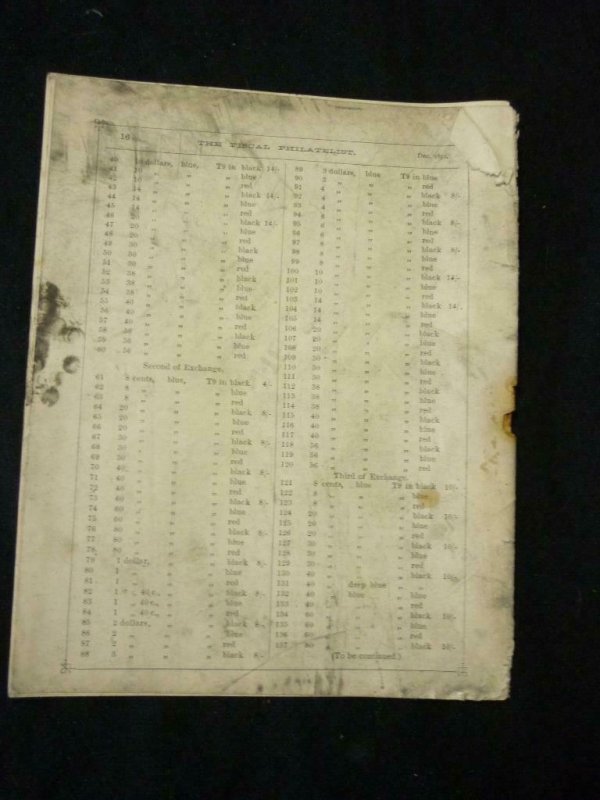 16
THE FISCAL PHILATELIST.
40 10 dollars, blue, T9 in black 14/-
41 10 „ „ „ blue
42 10 „ „ „ red
43 14 „ „ „ black 14/-
44 14 „ „ „ blue
45 14 „ „ „ red
46 20 „ „ „ black 14/-
47 20 „ „ „ blue
48 20 „ „ „ red
49 30 „ „ „ black
50 30 „ „ „ blue
51 30 „ „ „ red
52 38 „ „ „ black
53 38 „ „ „ blue
54 38 „ „ „ red
55 40 „ „ „ black
56 40 „ „ „ blue
57 40 „ „ „ red
58 56 „ „ „ black
59 56 „ „ „ blue
60 56 „ „ „ red
Second of Exchange.
61 8 cents, blue, T9 in black 4/-
62 8 „ „ „ blue
63 8 „ „ „ red
64 20 „ „ „ black 8/-
65 20 „ „ „ blue
66 20 „ „ „ red
67 30 „ „ „ black 8/-
68 30 „ „ „ blue
69 30 „ „ „ red
70 40 „ „ „ black 8/-
71 40 „ „ „ blue
72 40 „ „ „ red
73 60 „ „ „ black 8/-
74 60 „ „ „ blue
75 60 „ „ „ red
76 80 „ „ „ black 8/-
77 80 „ „ „ blue
78 80 „ „ „ red
79 1 dollar, „ „ black 8/-
80 1 „ „ „ blue
81 1 „ „ „ red
82 1 „ 40 c., „ „ black 8/-
83 1 „ 40 c., „ „ blue
84 1 „ 40 c., „ „ red
85 2 dollars, „ „ black 8/-
86 2 „ „ „ blue
87 2 „ „ „ red
88 3 „ „ „ black 8/-
89 3 dollars, blue T9 in blue
90 3 „ „ „ red
91 4 „ „ „ black 8/-
92 4 „ „ „ blue
93 4 „ „ „ red
94 6 „ „ „ black 8/-
95 6 „ „ „ blue
96 6 „ „ „ red
97 8 „ „ „ black 8/-
98 8 „ „ „ blue
99 8 „ „ „ red
100 10 „ „ „ black 14/-
101 10 „ „ „ blue
102 10 „ „ „ red
103 14 „ „ „ black 14/-
104 14 „ „ „ blue
105 14 „ „ „ red
106 20 „ „ „ black
107 20 „ „ „ blue
108 20 „ „ „ red
109 30 „ „ „ black
110 30 „ „ „ blue
111 30 „ „ „ red
112 38 „ „ „ black
113 38 „ „ „ blue
114 38 „ „ „ red
115 40 „ „ „ black
116 40 „ „ „ blue
117 40 „ „ „ red
118 56 „ „ „ black
119 56 „ „ „ blue
120 56 „ „ „ red
Third of Exchange.
121 8 cents, blue T9 in black 10/-
122 8 „ „ „ blue
123 8 „ „ „ red
124 20 „ „ „ black 10/-
125 20 „ „ „ blue
126 20 „ „ „ red
127 30 „ „ „ black 10/-
128 30 „ „ „ blue
129 30 „ „ „ red
130 40 „ „ „ black 10/-
131 40 „ deep blue „ „
132 40 „ blue „ „ blue
133 40 „ „ „ red
134 60 „ „ „ black 10/-
135 60 „ „ „ blue
136 60 „ „ „ red
137 80 „ „ „ black 10/-
(To be continued.)